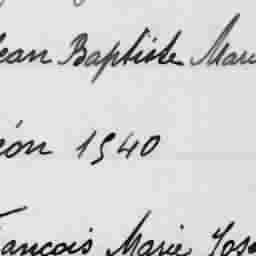 Jean Baptiste Marie
éon 1940
François Marie Jose